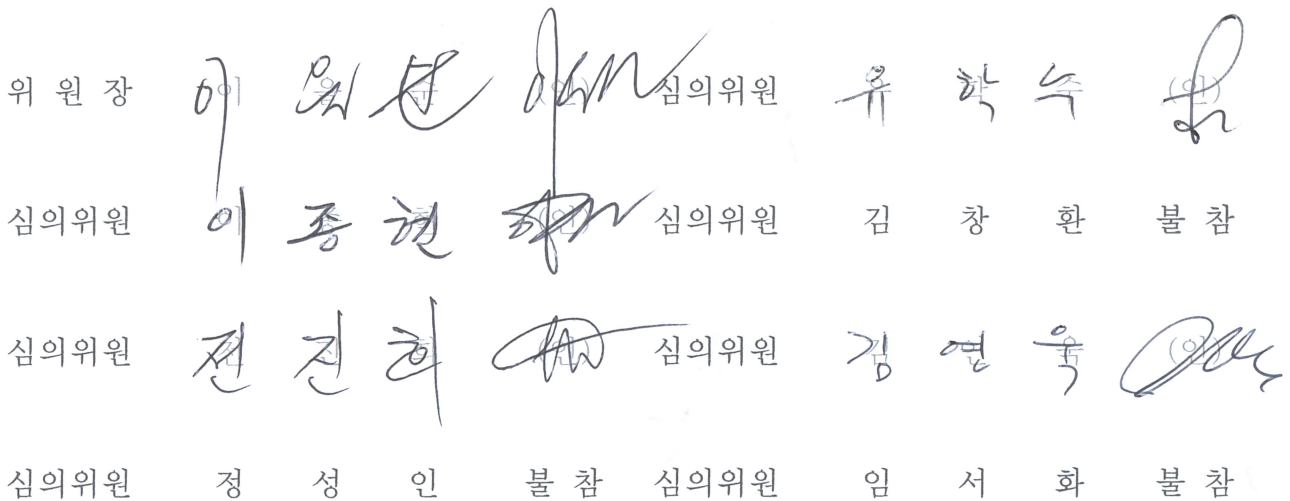 위 원 장 이 (인) 심의위원 유 학 수 (인)
심의위원 이 종 현 (인) 심의위원 김 창 환 불 참
심의위원 전 진 희 (인) 심의위원 김 연 욱 (인)
심의위원 정 성 인 불 참 심의위원 임 서 화 불 참